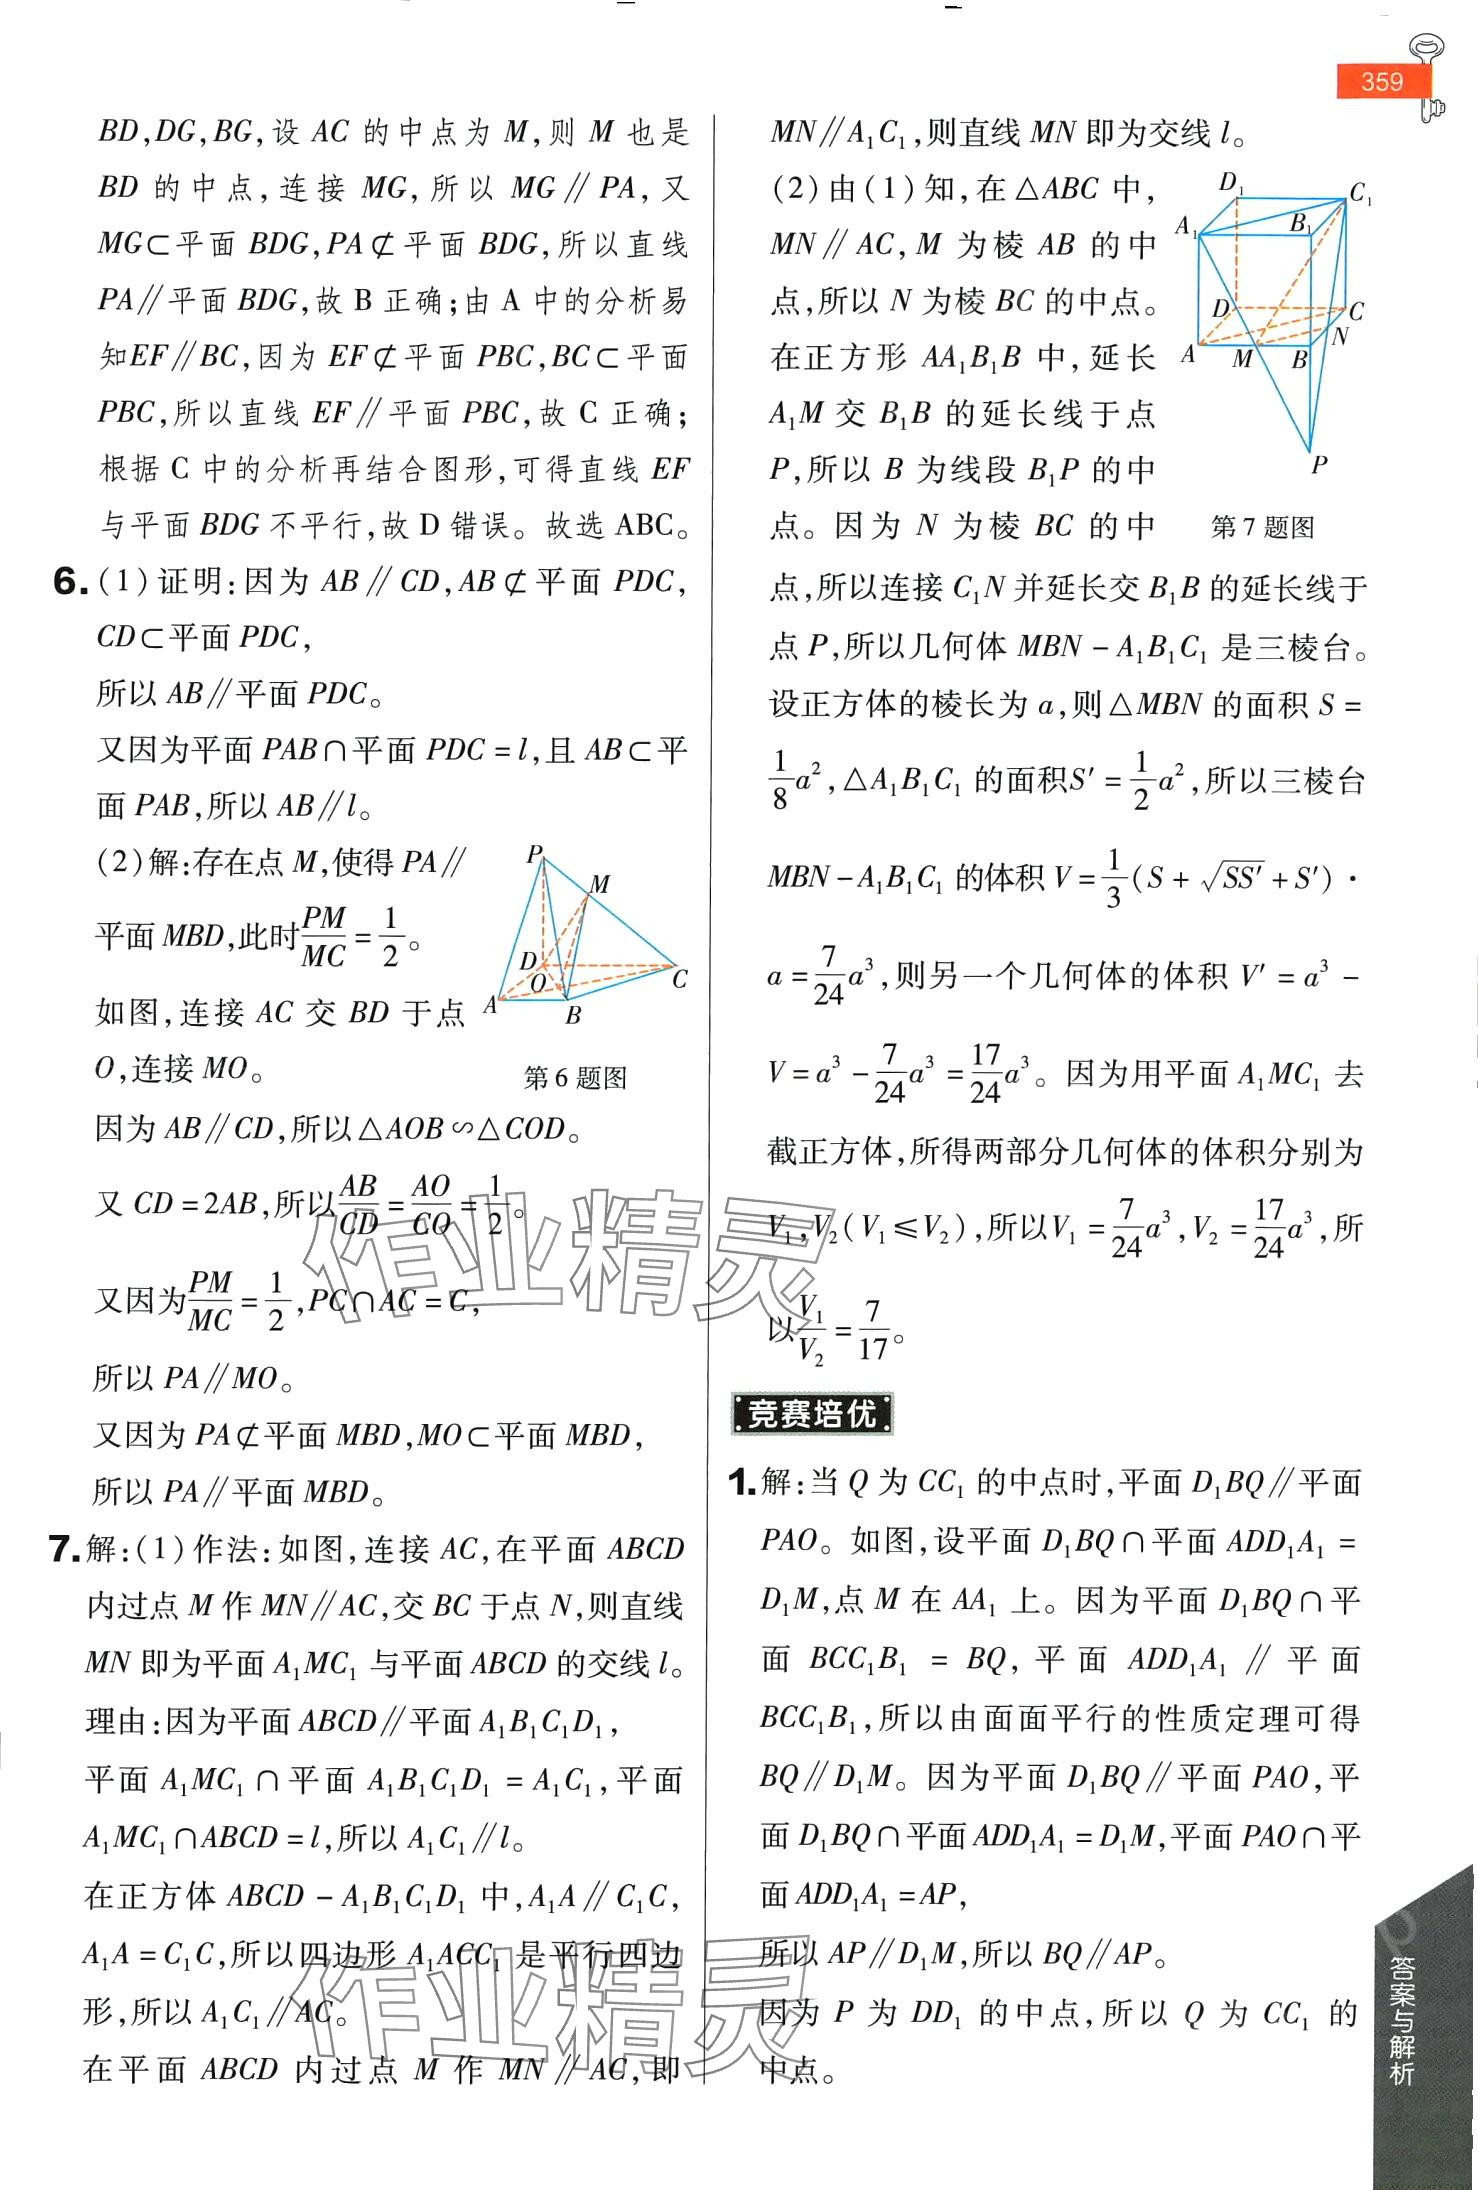 359
BD,DG,BG,设 AC 的中点为 M,则 M 也是
BD 的中点,连接 MG,所以 MG∥PA,又
MG⊂平面 BDG,PA⊄平面 BDG,所以直线
PA∥平面 BDG,故 B 正确;由 A 中的分析易
知EF∥BC,因为 EF⊄平面 PBC,BC⊂平面
PBC,所以直线 EF∥平面 PBC,故 C 正确;
根据 C 中的分析再结合图形,可得直线 EF
与平面 BDG 不平行,故 D 错误。故选 ABC。
6.(1)证明:因为 AB∥CD,AB⊄平面 PDC,
CD⊂平面 PDC,
所以 AB∥平面 PDC。
又因为平面 PAB∩平面 PDC=l,且 AB⊂平
面 PAB,所以 AB∥l。
(2)解:存在点 M,使得 PA∥
平面 MBD,此时PM/MC=1/2。
如图,连接 AC 交 BD 于点
O,连接 MO。
P
M
D
O
C
A
B
第 6 题图
因为 AB∥CD,所以△AOB∽△COD。
又 CD=2AB,所以AB/CD=AO/CO=1/2。
又因为PM/MC=1/2,PC∩AC=C,
所以 PA∥MO。
又因为 PA⊄平面 MBD,MO⊂平面 MBD,
所以 PA∥平面 MBD。
7.解:(1)作法:如图,连接 AC,在平面 ABCD
内过点 M 作 MN∥AC,交 BC 于点 N,则直线
MN 即为平面 A₁MC₁ 与平面 ABCD 的交线 l。
理由:因为平面 ABCD∥平面 A₁B₁C₁D₁,
平面 A₁MC₁∩平面 A₁B₁C₁D₁=A₁C₁,平面
A₁MC₁∩ABCD=l,所以 A₁C₁∥l。
在正方体 ABCD-A₁B₁C₁D₁ 中,A₁A∥C₁C,
A₁A=C₁C,所以四边形 A₁ACC₁ 是平行四边
形,所以 A₁C₁∥AC。
在平面 ABCD 内过点 M 作 MN∥AC,即
MN∥A₁C₁,则直线 MN 即为交线 l。
(2)由(1)知,在△ABC 中,
MN∥AC,M 为棱 AB 的中
点,所以 N 为棱 BC 的中点。
在正方形 AA₁B₁B 中,延长
A₁M 交 B₁B 的延长线于点
P,所以 B 为线段 B₁P 的中
点。因为 N 为棱 BC 的中
D₁
C₁
A₁
B₁
D
C
N
A
M
B
P
第 7 题图
点,所以连接 C₁N 并延长交 B₁B 的延长线于
点 P,所以几何体 MBN-A₁B₁C₁ 是三棱台。
设正方体的棱长为 a,则△MBN 的面积 S=
1/8a²,△A₁B₁C₁ 的面积S′=1/2a²,所以三棱台
MBN-A₁B₁C₁ 的体积 V=1/3(S+√SS′+S′)·
a=7/24a³,则另一个几何体的体积 V′=a³-
V=a³-7/24a³=17/24a³。因为用平面 A₁MC₁ 去
截正方体,所得两部分几何体的体积分别为
V₁,V₂(V₁≤V₂),所以V₁=7/24a³,V₂=17/24a³,所
以V₁/V₂=7/17。
竞赛培优
1.解:当 Q 为 CC₁ 的中点时,平面 D₁BQ∥平面
PAO。如图,设平面 D₁BQ∩平面 ADD₁A₁=
D₁M,点 M 在 AA₁ 上。因为平面 D₁BQ∩平
面 BCC₁B₁=BQ,平面 ADD₁A₁∥平面
BCC₁B₁,所以由面面平行的性质定理可得
BQ∥D₁M。因为平面 D₁BQ∥平面 PAO,平
面 D₁BQ∩平面 ADD₁A₁=D₁M,平面 PAO∩平
面 ADD₁A₁=AP,
所以 AP∥D₁M,所以 BQ∥AP。
因为 P 为 DD₁ 的中点,所以 Q 为 CC₁ 的
中点。
答案与解析
作业精灵
作业精灵